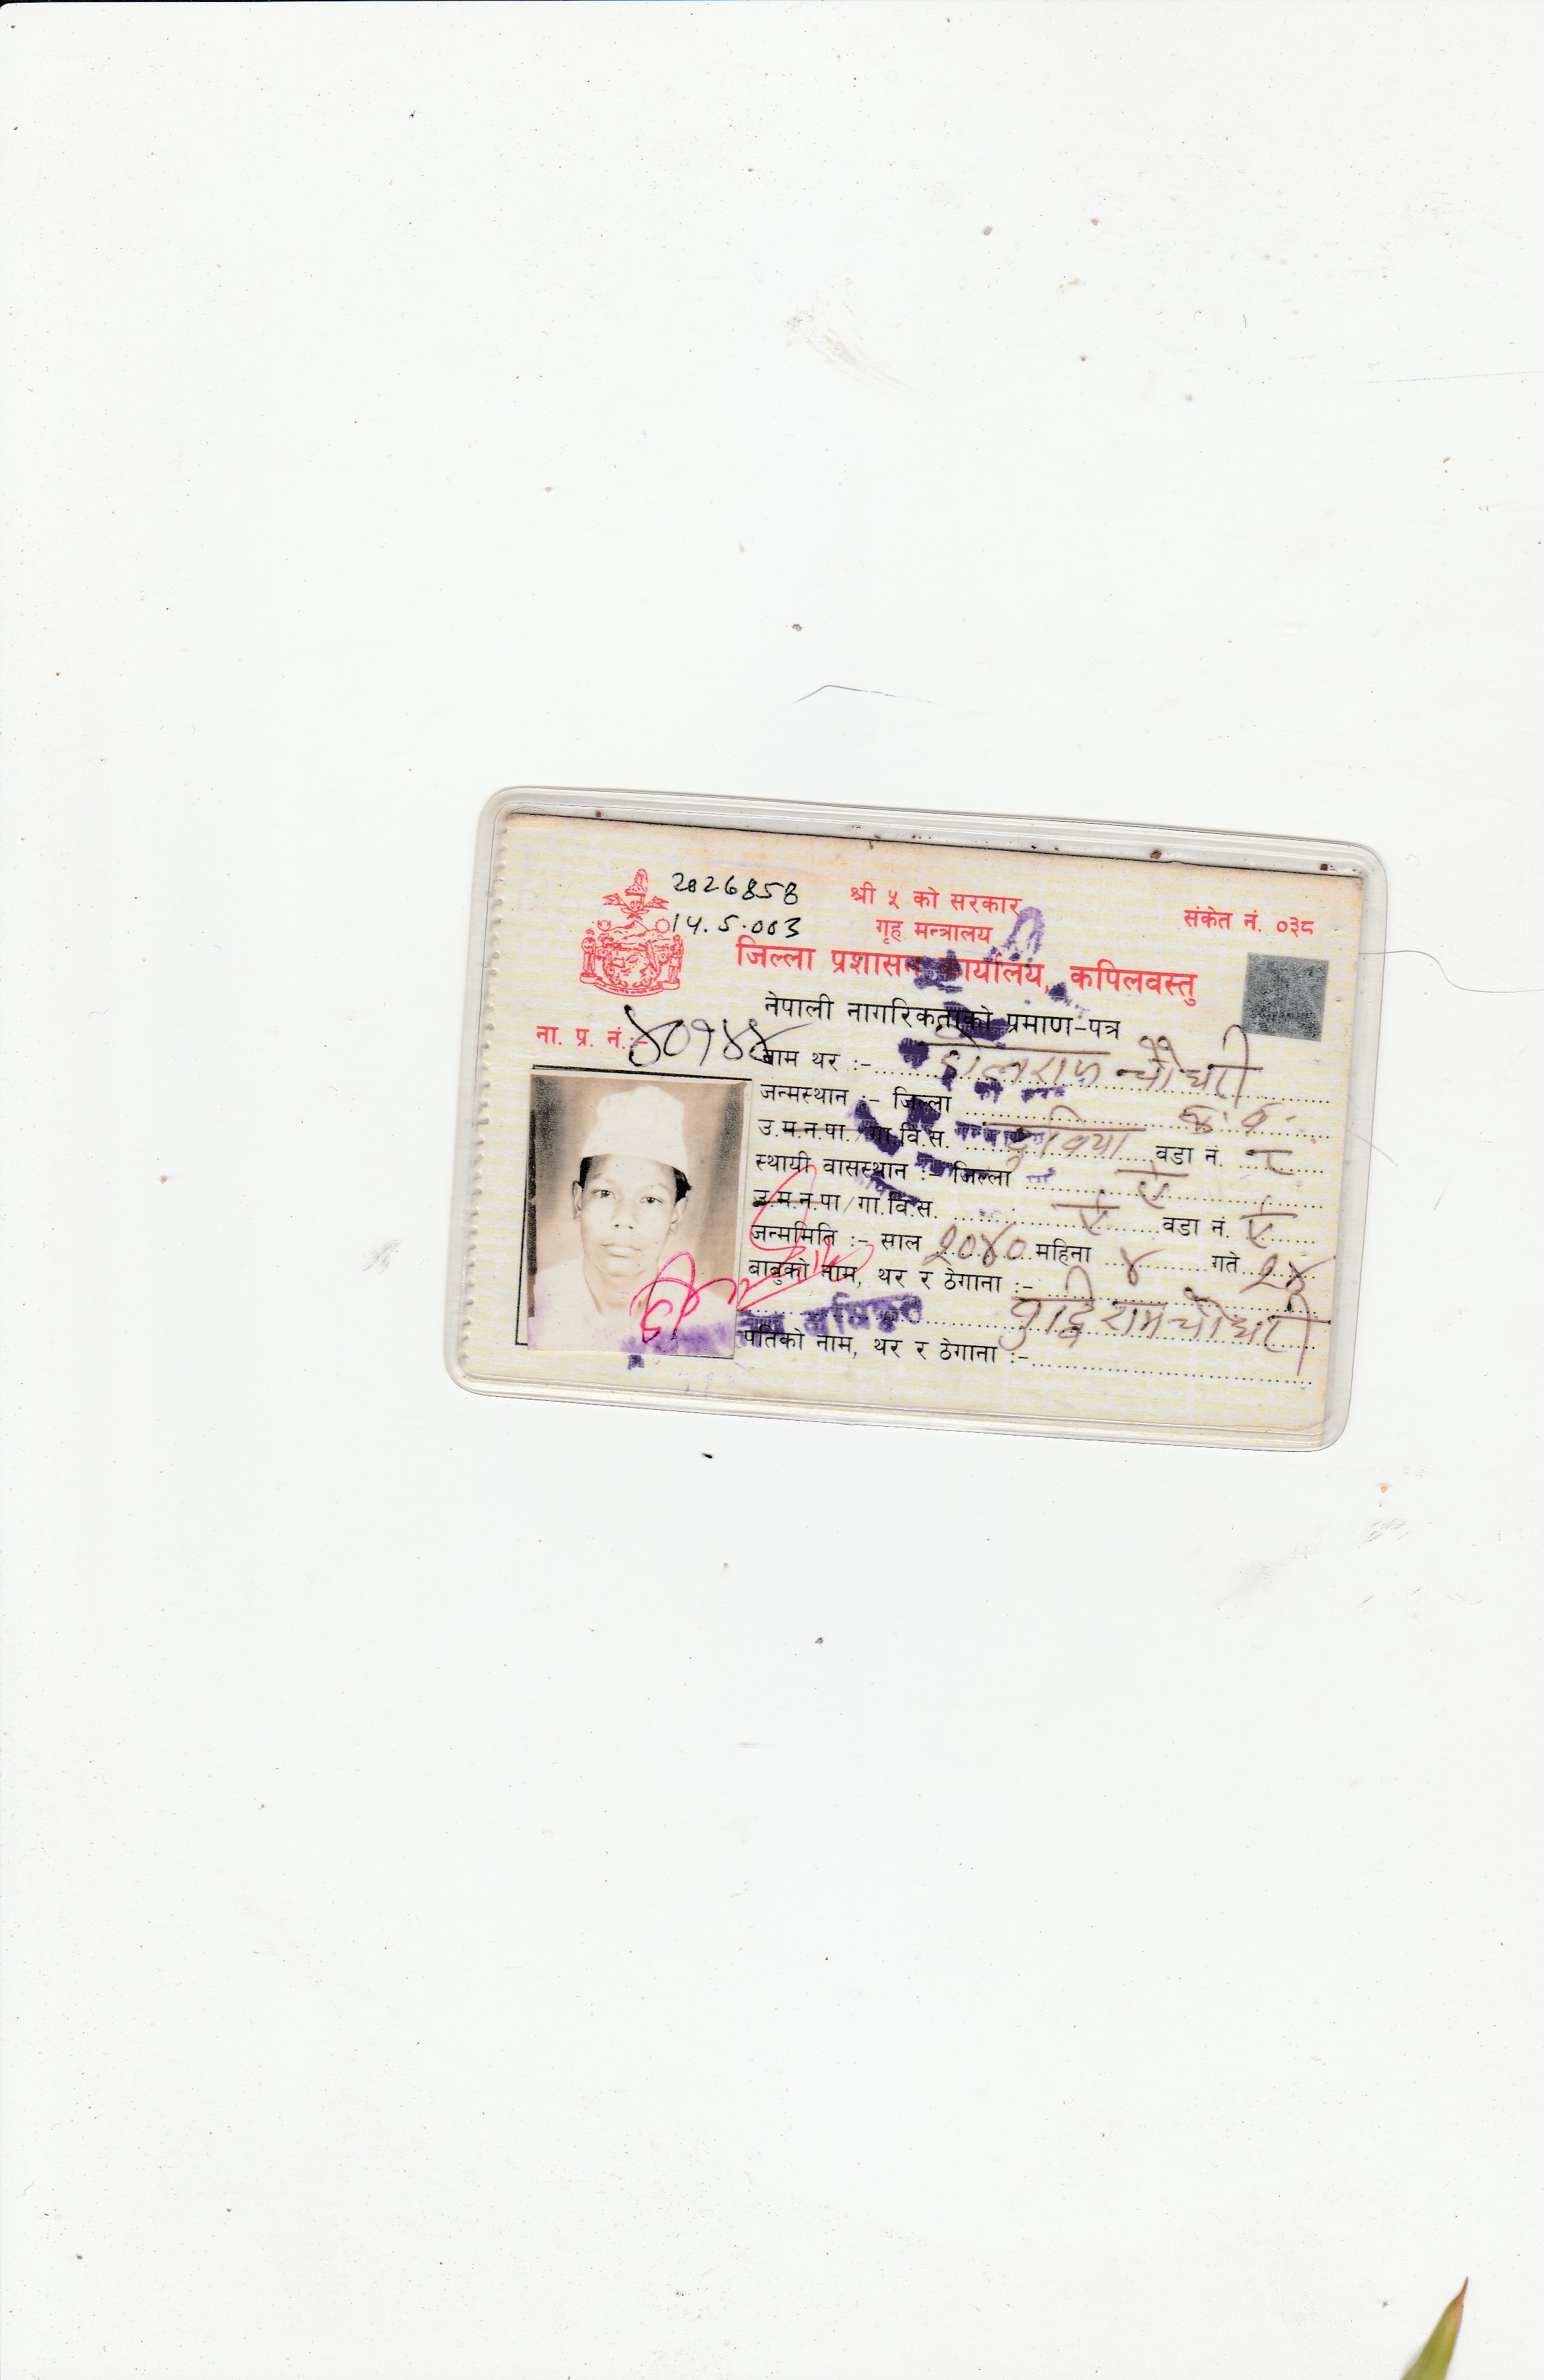 2026858
14.5.003
श्री ५ को सरकार
गृह मन्त्रालय
संकेत नं. ०३८
जिल्ला प्रशासन कार्यालय, कपिलवस्तु
नेपाली नागरिकताको प्रमाण-पत्र
ना. प्र. नं.:- ४०१४४
नाम थर :- चौधरी
जन्मस्थान :- जिल्ला क. व.
उ.म.न.पा./गा.वि.स. वडा नं. ८
स्थायी वासस्थान :- जिल्ला ऐ
उ.म.न.पा/गा.वि.स. ऐ वडा नं. ऐ
जन्ममिति :- साल २०४० महिना ४ गते २४
बाबुको नाम, थर र ठेगाना :-
बुद्धिराम चौधरी
पतिको नाम, थर र ठेगाना :-